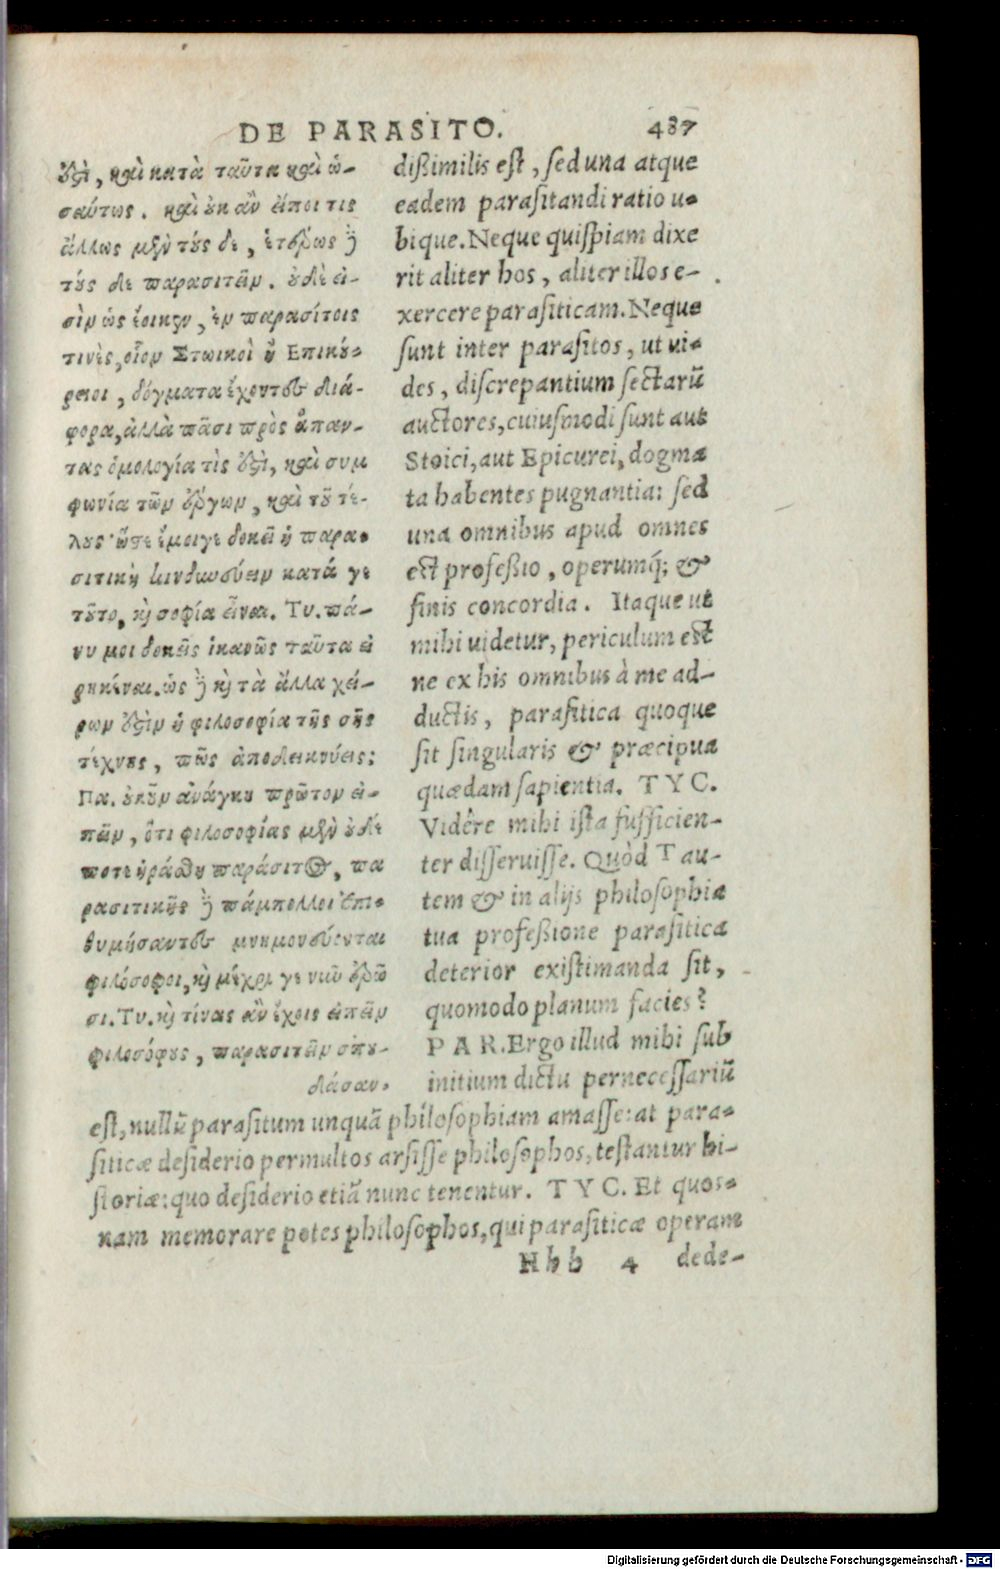 DE PARASITO. 487
ἐστὶ, καὶ κατὰ ταῦτα καὶ ὡ-
σαύτως. καὶ οὐκ ἂν εἴποι τις
ἄλλως μὲν τούς δε, ἑτέρως δὲ
τούς δε παρασιτεῖν. οὐδὲ εἰ-
σὶν ὡς ἔοικεν, ἐν παρασίτοις
τινὲς, οἷον Στωικοὶ ἢ Επικού-
ρειοι, δόγματα ἔχοντες διά-
φορα, ἀλλὰ πᾶσι πρὸς ἅπαν-
τας ὁμολογία τὶς ἐστὶ, καὶ συμ
φωνία τῶν ἔργων, καὶ τοῦ τέ-
λους· ὥστε ἔμοιγε δοκεῖ ἡ παρα-
σιτικὴ κινδυνεύειν κατά γε
τοῦτο, καὶ σοφία εἶναι. Τυ. πά-
νυ μοι δοκεῖς ἱκανῶς ταῦτα εἰ
ρηκέναι. ὡς δὲ καὶ τὰ ἄλλα χεί-
ρων ἐστὶν ἡ φιλοσοφία τῆς σῆς
τέχνης, πῶς ἀποδεικνύεις;
Πα. οὐκοῦν ἀνάγκη πρῶτον εἰ-
πεῖν, ὅτι φιλοσοφίας μὲν οὐδέ
ποτε ἠράσθη παράσιτος, πα
ρασιτικῆς δὲ πάμπολλοι ἐπι-
θυμήσαντες μνημονεύονται
φιλόσοφοι, καὶ μέχρι γε νῦν ἐρῶ
σι. Τυ. καὶ τίνας ἂν ἔχοις εἰπεῖν
φιλοσόφους, παρασιτεῖν σπου-
δάσαν-
dißimilis est, sed una atque
eadem parasitandi ratio u-
bique. Neque quispiam dixe
rit aliter hos, aliter illos e-
xercere parasiticam. Neque
sunt inter parasitos, ut ui-
des, discrepantium sectarũ
auctores, cuiusmodi sunt aut
Stoici, aut Epicurei, dogma
ta habentes pugnantia: sed
una omnibus apud omnes
est profeßio, operumq́; &
finis concordia. Itaque ut
mihi uidetur, periculum est
ne ex his omnibus à me ad-
ductis, parasitica quoque
sit singularis & præcipua
quædam sapientia. TYC.
Vidêre mihi ista sufficien-
ter disseruisse. Quòd T au-
tem & in alijs philosophia
tua profeßione parasitica
deterior existimanda sit,
quomodo planum facies?
PAR. Ergo illud mihi sub
initium dictu pernecessariũ
est, nullũ parasitum unquã philosophiam amasse: at para-
siticæ desiderio permultos arsisse philosophos, testantur hi-
storiæ: quo desiderio etiã nunc tenentur. TYC. Et quos-
nam memorare potes philosophos, qui parasiticæ operam
Hhh 4 dede-
Digitalisierung gefördert durch die Deutsche Forschungsgemeinschaft - DFG